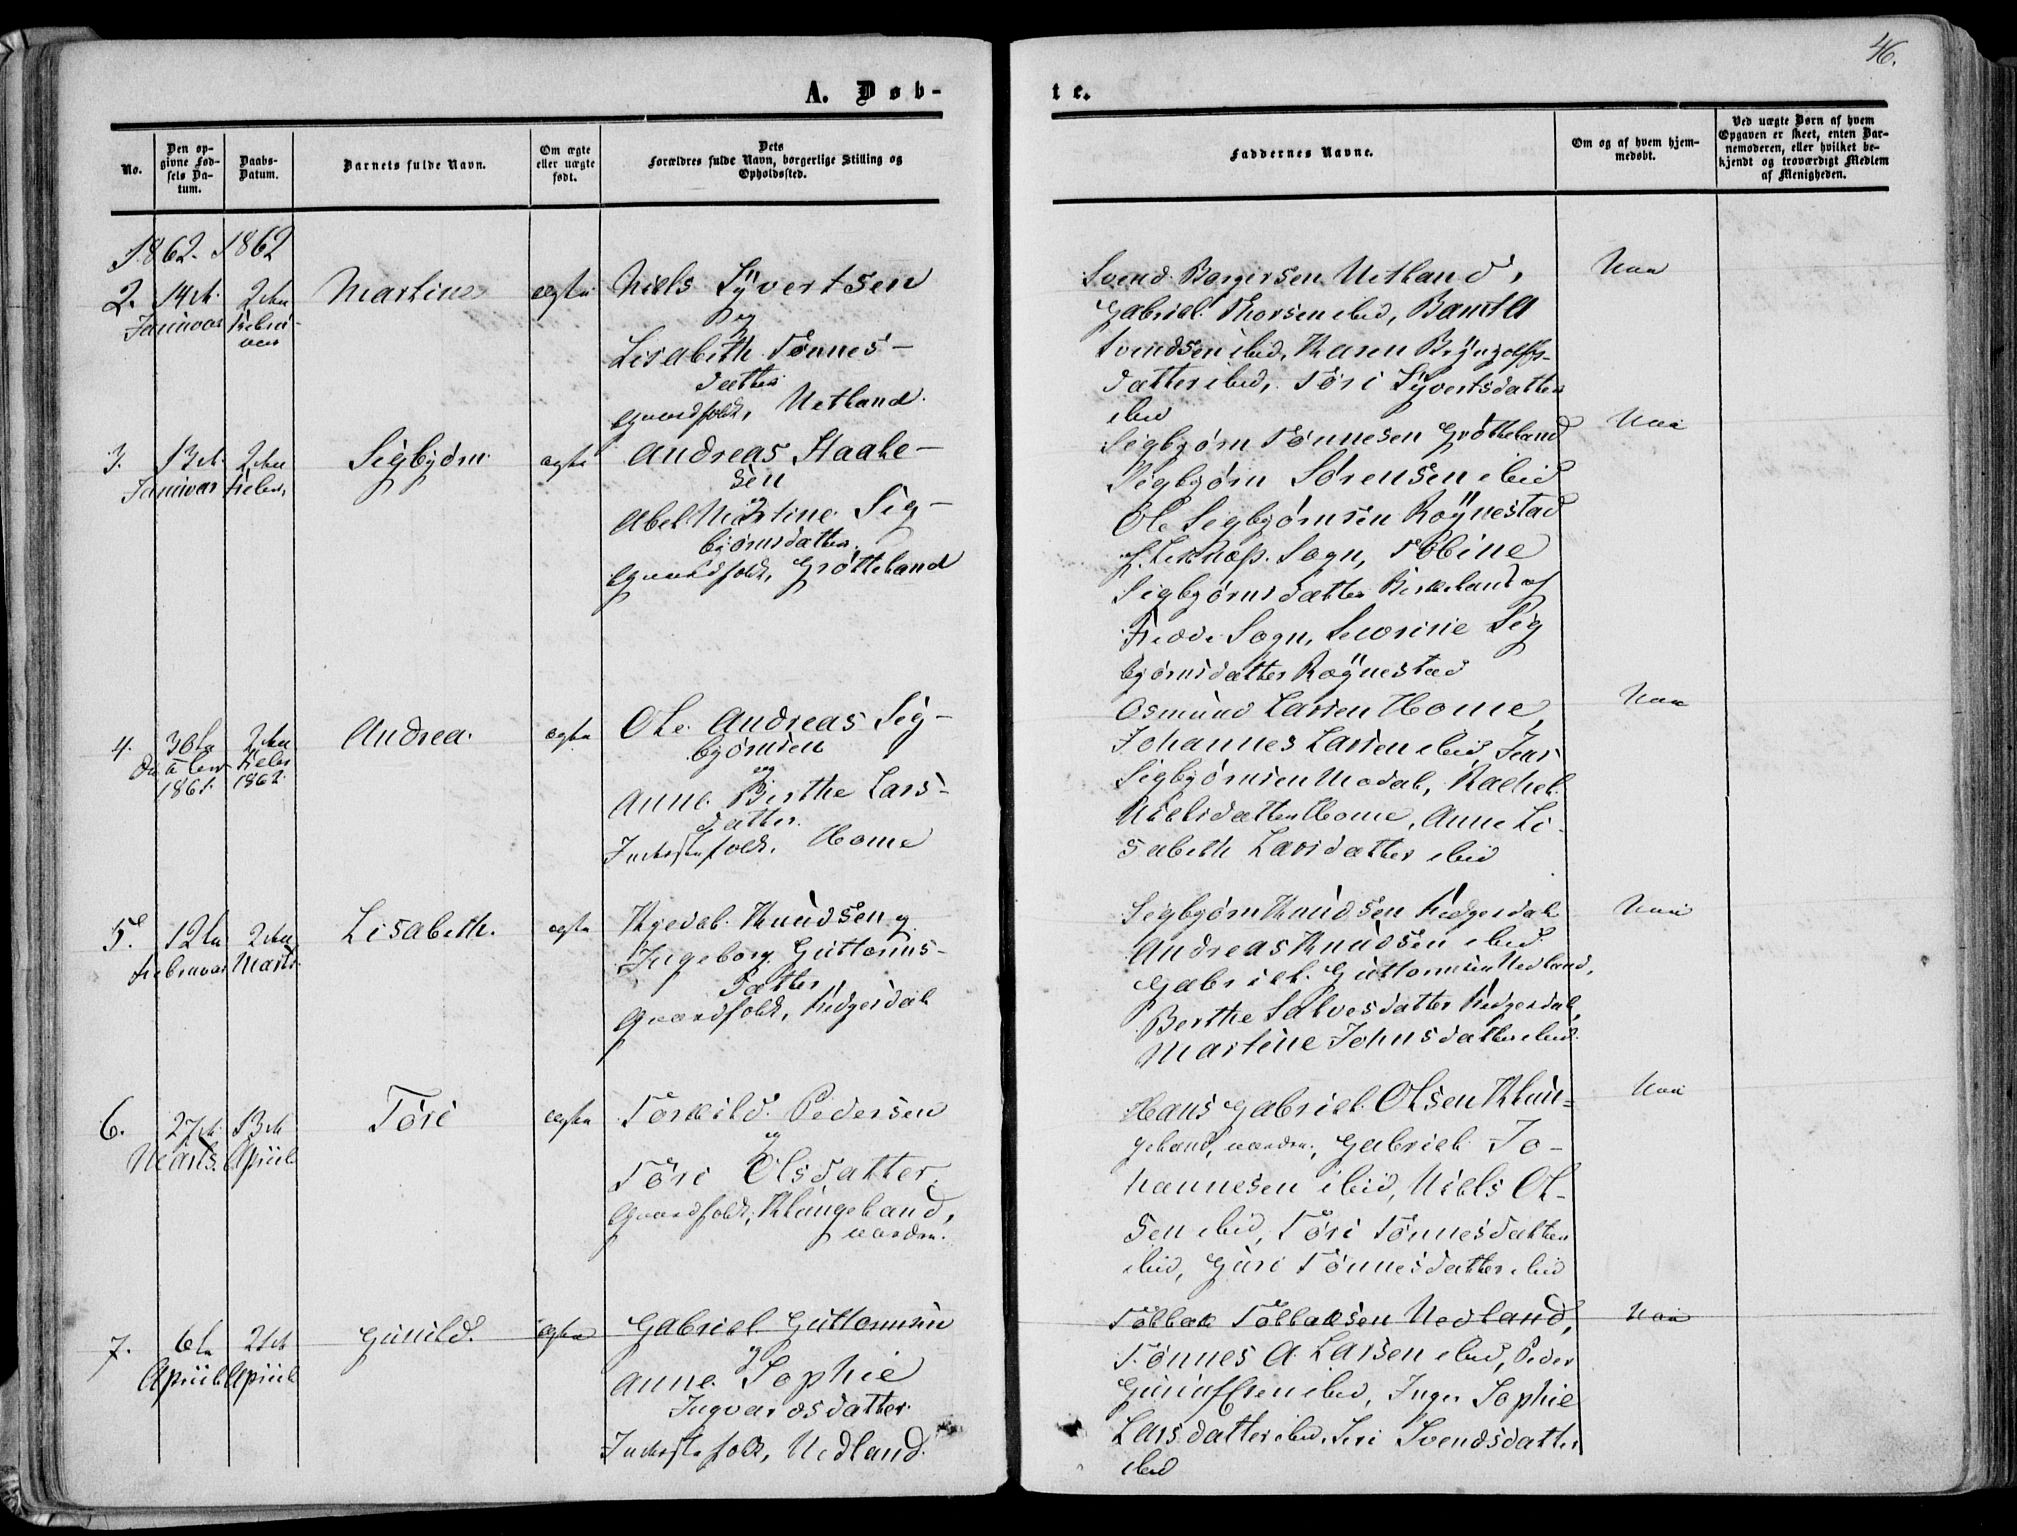 46.
A. Døb-
te.
No.
Den op-
givne Fød-
sels Da-
tum.
Daabs-
Datum.
Barnets fulde Navn.
Om ægte
eller uægte
født.
Dets
Forældres fulde Navn, borgerlige Stilling og
Opholdssted.
Faddernes Navne.
Om og af hvem hjem-
medøbt.
Ved uægte Børn af hvem
Opgaven er skeet, enten Bar-
nemoderen, eller hvilket be-
kjendt og troværdigt Medlem
af Menigheden.
1862. 1862
2.
14de
Januar
2den
Februar
Martine
ægte
Niels Syvertsen
og
Lisabeth Tønnes-
datter
Gaardfolk, Netland.
Svend Børgersen Netland,
Gabriel Thorsen ibid,
Svendsen ibid, Karen Bryngolfs-
datter ibid, Tøri Syvertsdatter
ibid
Nei
3.
13de
Januar
2den
Febr.
Sigbjørn
ægte
Andreas Staale-
sen
og
Abel Martine Sig-
bjørnsdatter.
Gaardfolk, Grøtteland
Sigbjørn Tønnesen Grøtteland
Sigbjørn Sørensen ibid
Ole Sigbjørnsen Røynestad
Sogn, Tobine
Sigbjørnsdatter Birkeland af
Fede Sogn, Severine Sig
bjørnsdatter Røynestad
Nei
4.
30te
1861.
2den
Febr
1862.
Andrea.
ægte
Ole Andreas Sig-
bjørnsen
og
Anne Birthe Lars-
datter.
Inderstefolk, Home
Osmund Larsen Home,
Johannes Larsen ibid, Jens
Sigbjørnsen Modal, Rachel
Nielsdatter Home, Anne Li-
sabeth Larsdatter ibid
Nei
5.
12te
Februar
2den
Marts.
Lisabeth.
ægte
Knudsen og
Ingeborg Guttorms-
datter
Gaardfolk, Fidgerdal
Sigbjørn Knudsen Fidgerdal
Andreas Knudsen ibid.
Gabriel Guttormsen Nedland,
Berthe Salvesdatter Fidgerdal,
Martine Johnsdatter ibid.
Nei
6.
27de
Marts.
13de
April
Tøri
ægte
Torkild Pedersen
og
Tøri Olsdatter.
Gaardfolk, Klungeland,
nordre.
Hans Gabriel Olsen Klun-
geland, nordre, Gabriel Jo-
hannesen ibid, Niels Ol-
sen ibid, Tøri Tønnesdatter
ibid, Guri Tønnesdatter ibid
Nei
7.
6te
April
21de
April
Gunild.
ægte
Gabriel Guttormsen
og
Anne Sophie
Ingvardsdatter.
Inderstefolk, Nedland.
Tollak Tollaksen Nedland,
Tønnes A. Larsen ibid, Peder
ibid, Inger Sophie
Larsdatter ibid, Siri Svendsdatter
ibid
Nei